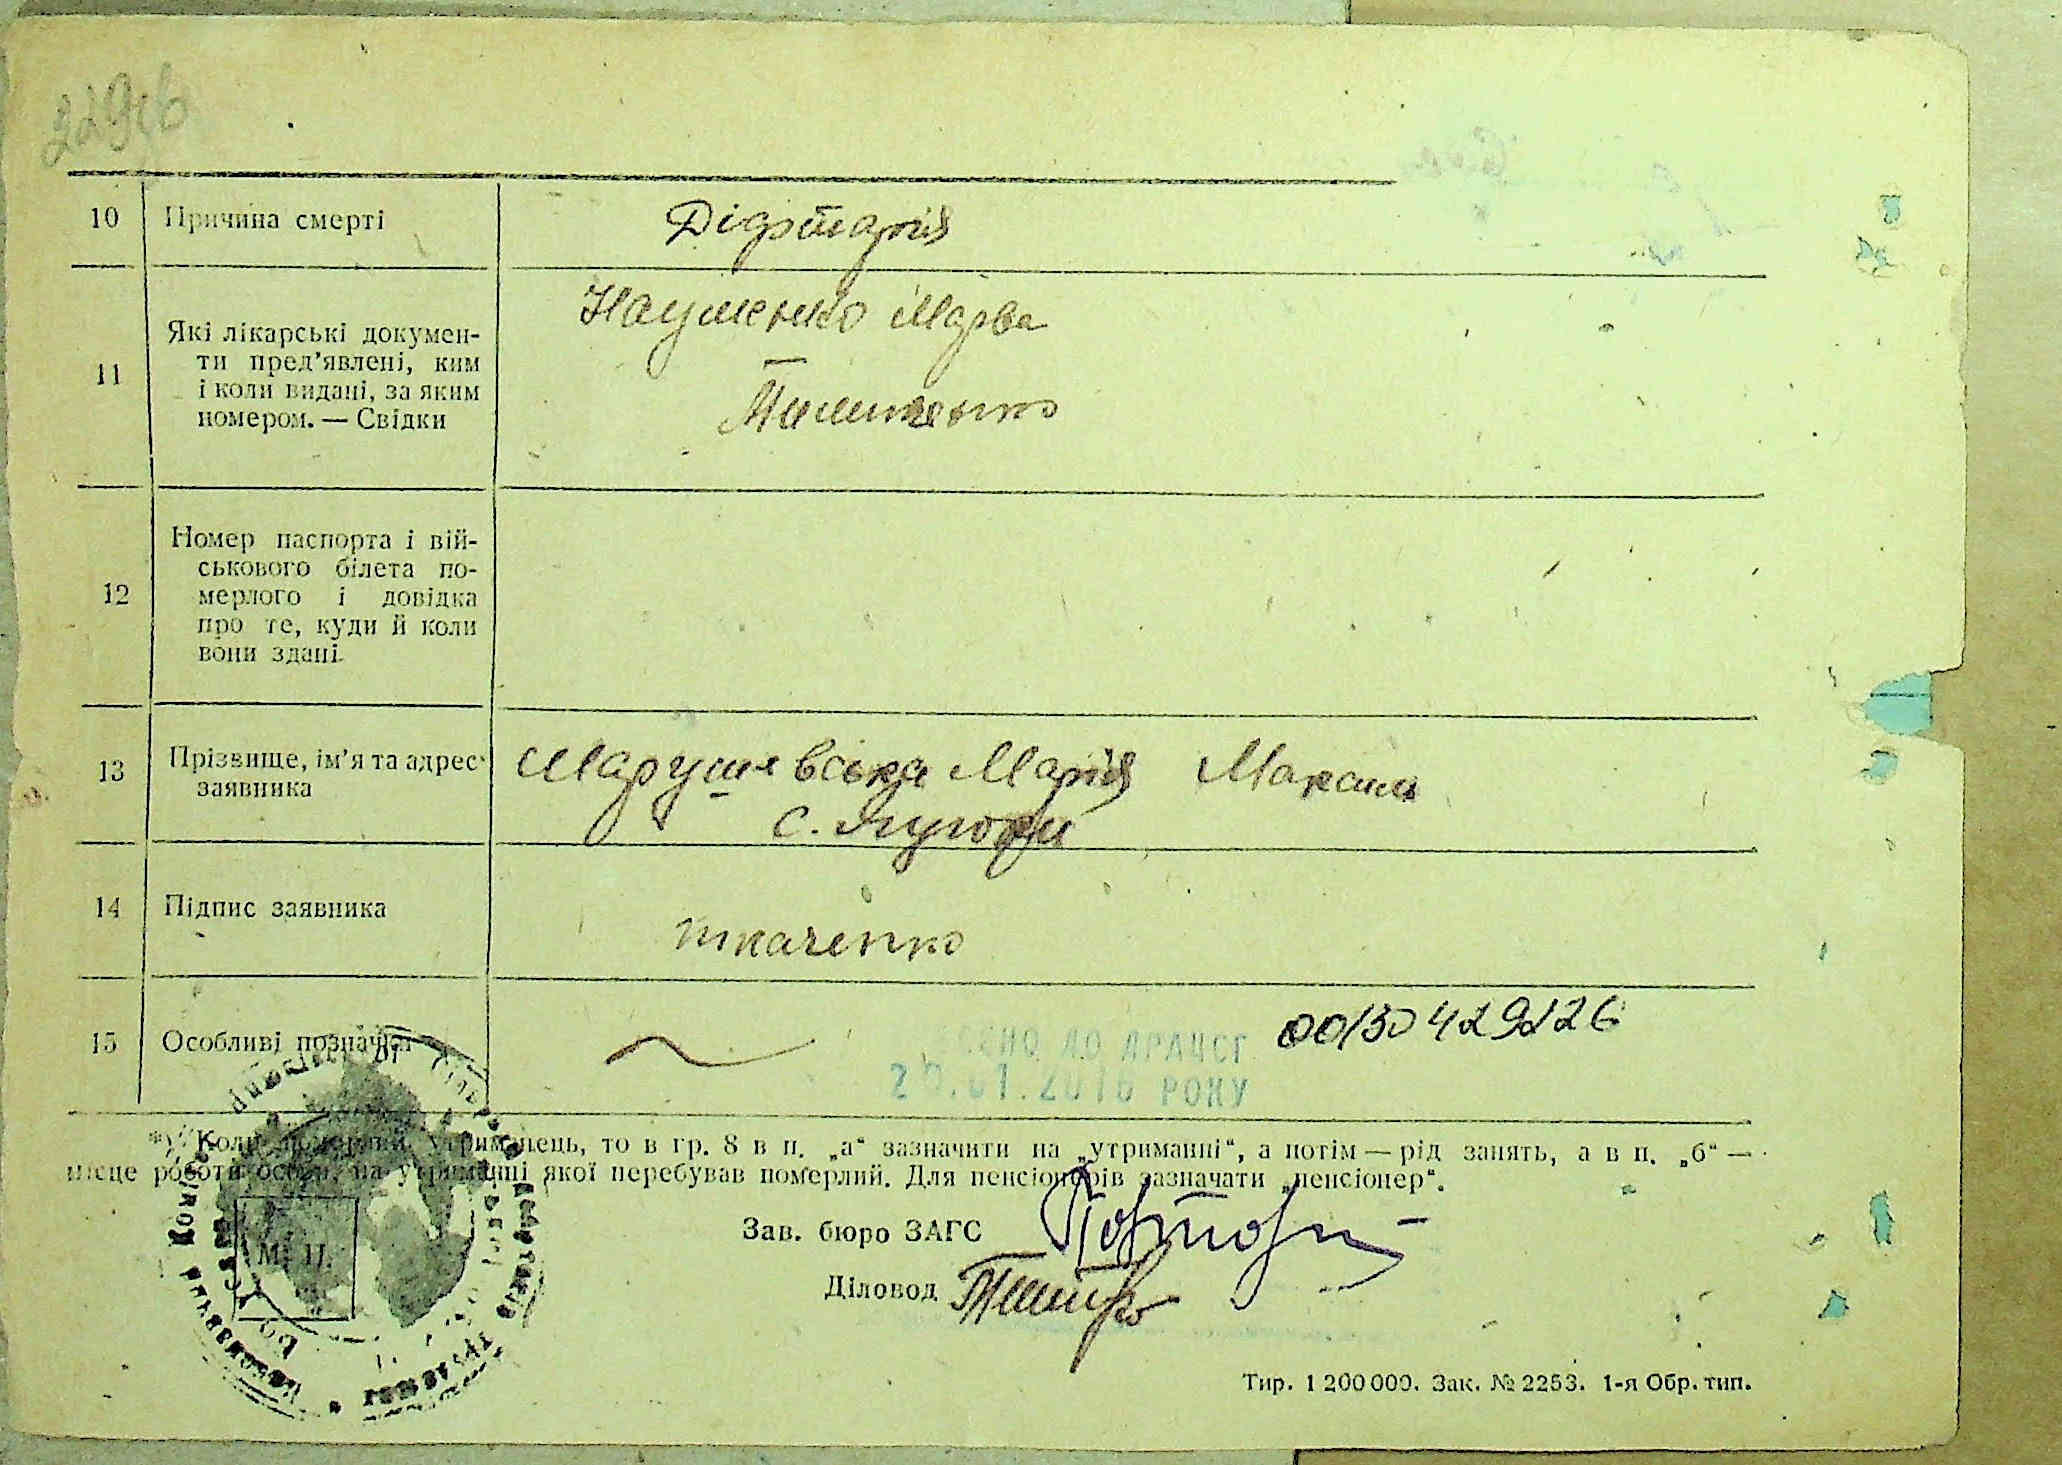 10 Причина смерті Діфтарія
11 Які лікарські докумен-
ти пред’явлені, ким
і коли видані, за яким
номером. — Свідки
Науменко Марва
12 Номер паспорта і вій-
ськового білета по-
мерлого і довідка
про те, куди й коли
вони здані.
13 Прізвище, ім’я та адрес
заявника
Марушевська Марія Максим
с.
14 Підпис заявника Ткаченко
15 Особливі позначки 00130429226
ДО ДРАЦСГ
.01.2016 РОКУ
*) Коли померлий утриманець, то в гр. 8 в п. „а“ зазначити на „утриманні“, а потім — рід занять, а в п. „б“ —
місце роботи особи, на утриманні якої перебував померлий. Для пенсіонерів зазначати „пенсіонер“.
Зав. бюро ЗАГС
Діловод
М. П.
Тир. 1 200 000. Зак. № 2253. 1-я Обр. тип.